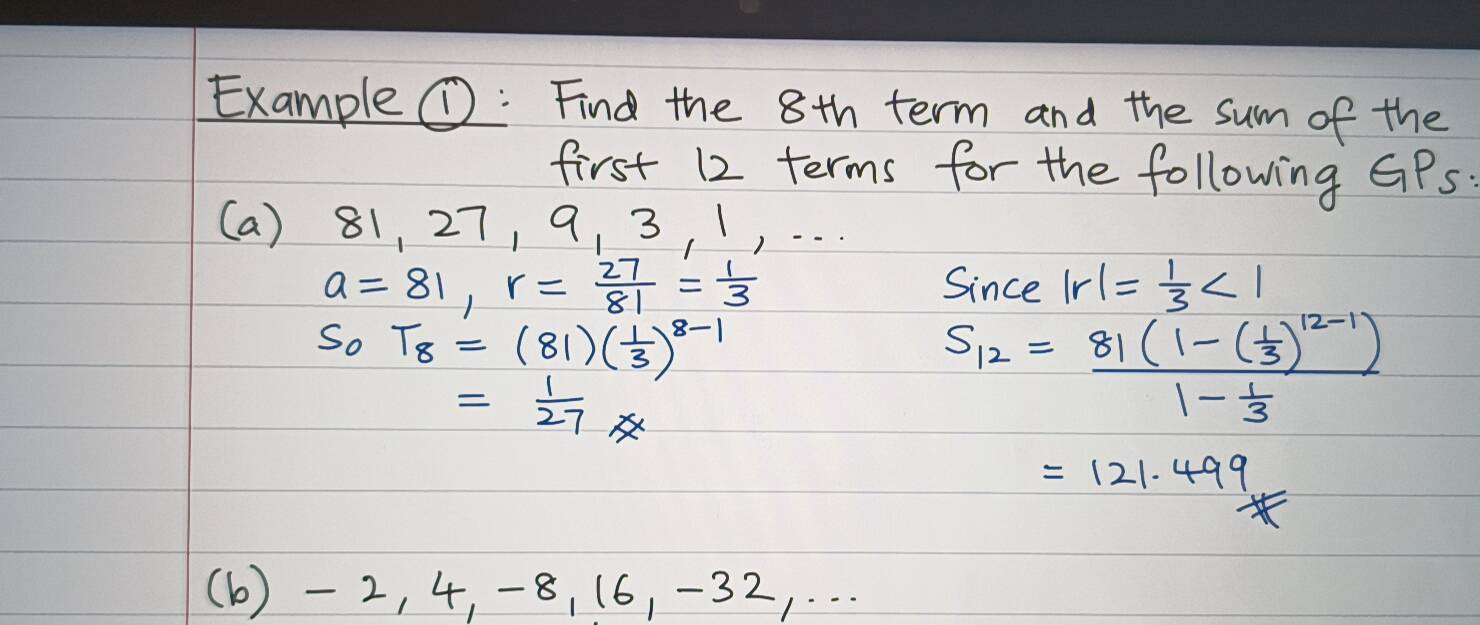 Example ①: Find the 8th term and the sum of the
first 12 terms for the following GPs:
(a) 81, 27, 9, 3, 1, ...
a = 81, r = 27/81 = 1/3
So T₈ = (81)(1/3)⁸⁻¹
= 1/27
Since |r| = 1/3 < 1
S₁₂ = 81(1-(1/3)¹²⁻¹) / 1-1/3
= 121.499
(b) -2, 4, -8, 16, -32, ...